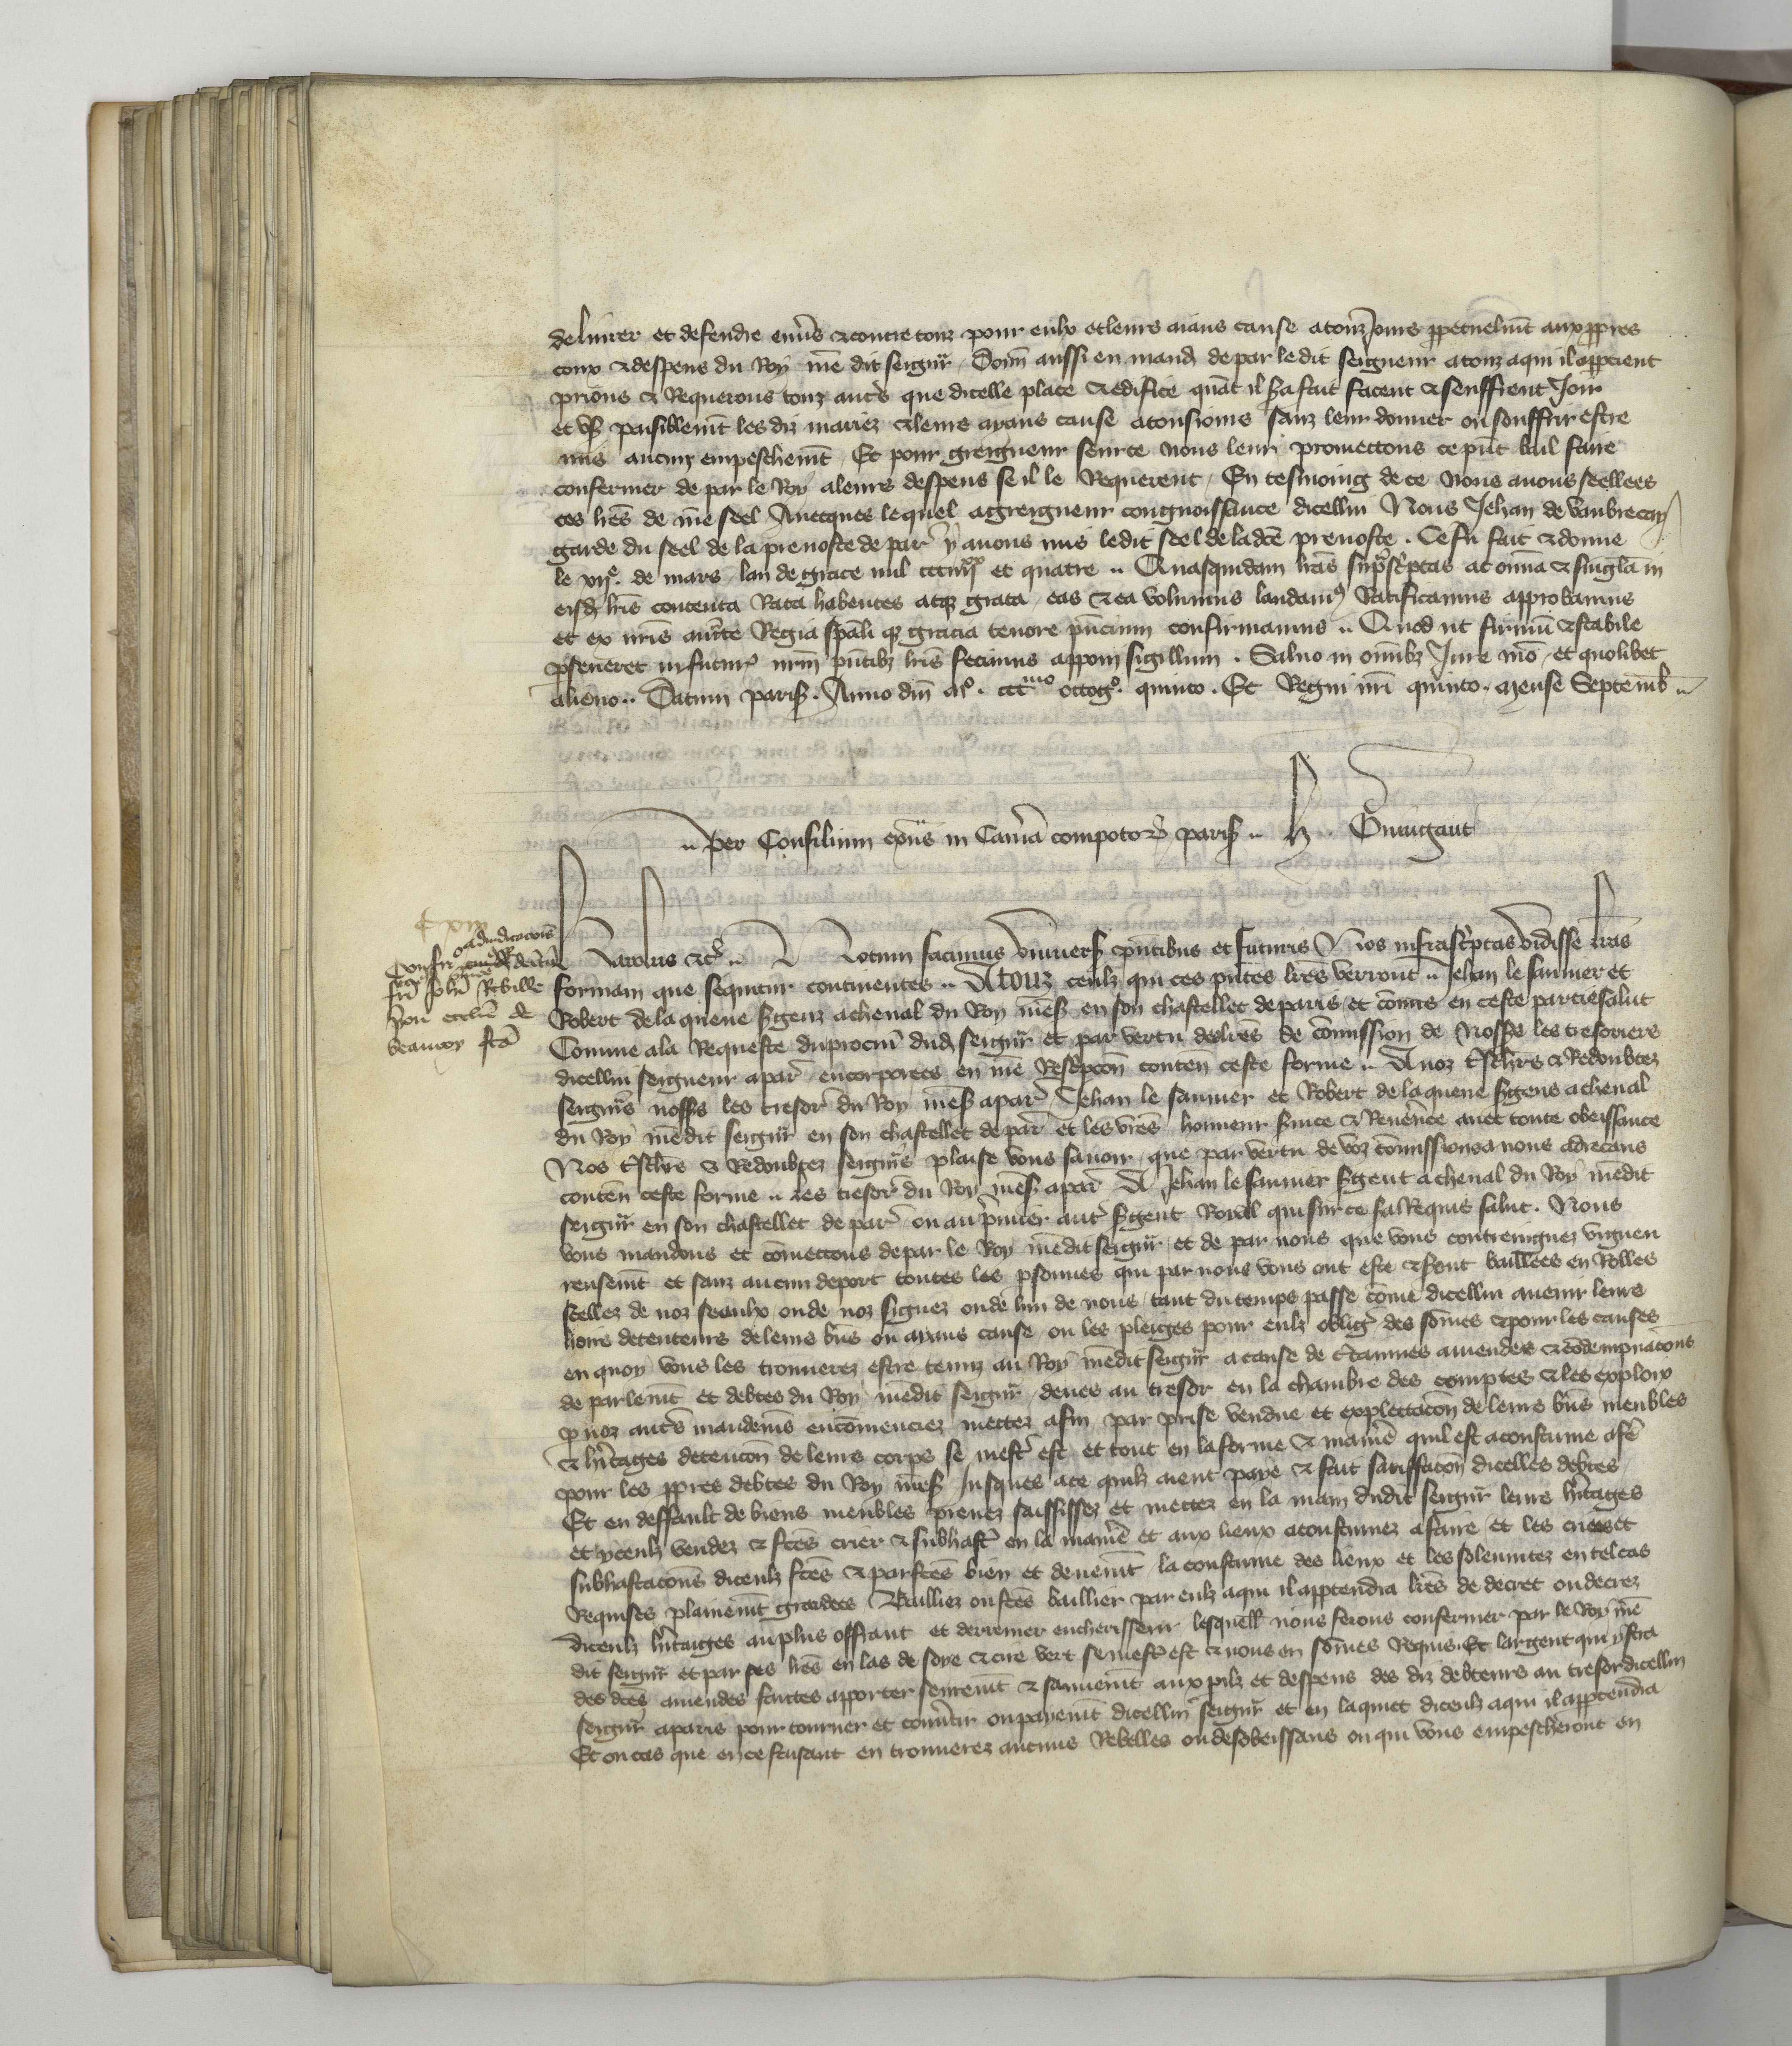 deliurer et defendre enus & contre touz pour eulx et leurs aians cause a touz Jours ppetuelmt aux ppres
coux & despens du Roy nre dit seigur Donn aussi en mand de par le dit seigneur a touz a qui il apptient
prions & Requerons touz autres que dicelle place & edifice quant il sa fait facent & seuffrent Joir
et user paisiblemt les diz mariez & leurs ayans cause a tousiours sanz leur donner ou souffrir estre
mis aucun empeschemt Et pour greigneur seurte nous leur promettons ce pnt bail faire
confermer de par le Roy a leurs despens se il le Requerent En tesmoing de ce nous auons seellees
ces lres de nre seel Auecques lequel a greigneur congnoissance dicellui Nous Jehan de
garde du seel de la preuoste de par y auons mis le dit seel de la dce preuoste . Ce fu fait & donne
le vije de mars lan de grace mil ccc iiijxx et quatre .. Quasquidam lras supsciptas ac omia & singla in
eisd lris contenta Rata habentes atq grata eas & ea volumus laudam9 Ratificamus approbamus
et ex nris aucte Regia spali q gracia tenore pncium confirmamus .. Quod ut firmu & stabile
pseueret in futur nrm pntibz lris fecimus apponi sigillum . Saluo in omibz Jure nro et quolibet
alieno .. Datum paris . Anno dni mo . ccc mo octogo . quinto . Et Regni nri quinto . mense Septemb ..
.. per Consilium exns in Cama compotor paris ..
Karolus &c .. Notum facimus vniuers pntibus et futuris Nos infrasciptas vidisse lras
formam que sequitur continentes .. A touz ceulz qui ces pntes lres verront .. Jehan le saunier et
Robert de la queue sgenz a cheual du Roy nres en son chastellet de paris et comis en ceste partie salut
Comme a la Requeste du procur dud seigur et par vertu des lres de comission de Nosss les tresoriers
dicellui seigneur a par encorporees en nre Rescpcon conten ceste forme .. A noz tschrs & Redoubtez
seigurs nosss les tresor du Roy nres a par Jehan le saunier et Robert de la queue sgens a cheual
du Roy nre dit seigur en son chastellet de par et les vres honneur suice & Reuence auec toute obeissance
Nos tschrs & Redoubtez seigurs plaise vous sauoir que par vertu de voz comissions a nous adrecans
conten ceste forme .. les tresor du Roy nres a par A Jehan le saunier sgent a cheual du Roy nre dit
seigur en son chastellet de par ou au pmier autr sgent Royal qui sur ce sa Requis salut . Nous
vous mandons et comettons de par le Roy nre dit seigur et de par nous que vous contreingnez viguen
reusemt et sanz aucun deport toutes les psonnes qui par nous vous ont este & sont baillees en Rolles
seellez de noz seaulx ou de noz signez ou de lun de nous tant du temps passe come dicellui auenir leurs
hoirs detenteurs de leurs bns ou ayans cause ou les pleiges pour eulz oblig des somes & pour les causes
en quoy vous les trouuerez estre tenuz au Roy nre dit seigur a cause de amendes & codempnacons
de parlemt et debtes du Roy nre dit seigur deues au tresor en la chambre des comptes & les explois
p noz autrs mandems encomenciez mettez a fin par prise vendue et explettacon de leurs bns meubles
& hitages detencon de leurs corps se mestr est et tout en la forme & maniere quil est acoustume a fe
pour les ppres debtes du Roy nres Jusques a ce quilz aient paye & fait satisfacon dicelles debtes
Et en deffault de biens meubles prenez saississez et mettez en la main dudit seigur leurs hitages
et yceulz vendez & fces crier & subhastr en la maniere et aux lieux acoustumez a faire et les criees et
subhastacons diceulz fces & parfces bien et deuemt la coustume des lieux et les solennitez en tel cas
Requises plainemt gardees Bailliez ou fces baillier par eulz a qui il apptendra lres de decret ou decrez
diceulz hitaiges au plus offrant et derrenier encherisseur lesquelles nous ferons confermer par le Roy nre
dit seigur et par ses lres en las de soye & cire vert se mestr est & nous en somes Requis Et largent qui ystra
des dces amendes faittes apporter seuremt & sauuemt aux pilz et despens des diz debteurs au tresor dicellui
seigur a paris pour tourner et conutir ou payemt dicellui seigur et en laquict diceulz a qui il apptendra
Et ou cas que en ce faisant en trouuerez aucuns Rebelles ou desobeissans ou qui vous empescheront en